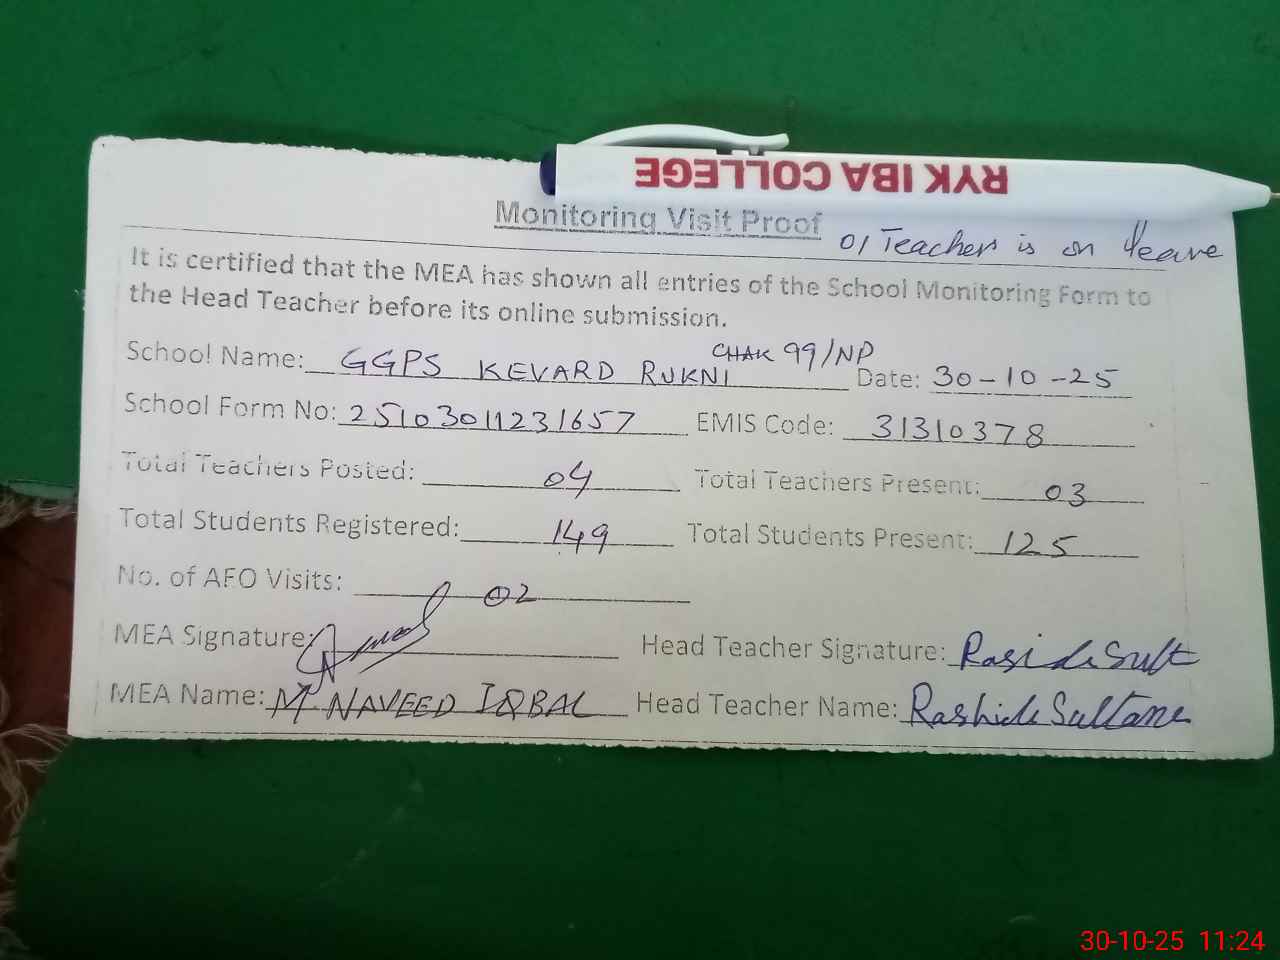 RYK IBA COLLEGE
Monitoring Visit Proof
01 Teacher is on leave
It is certified that the MEA has shown all entries of the School Monitoring Form to
the Head Teacher before its online submission.
School Name: GGPS KEVARD RUKNI CHAK 99/NP Date: 30-10-25
School Form No: 25103011231657 EMIS Code: 31310378
Total Teachers Posted: 04 Total Teachers Present: 03
Total Students Registered: 149 Total Students Present: 125
No. of AEO Visits: 02
MEA Signature: Head Teacher Signature:
MEA Name: M. NAVEED IQBAL Head Teacher Name: Rashida Sultana
30-10-25 11:24